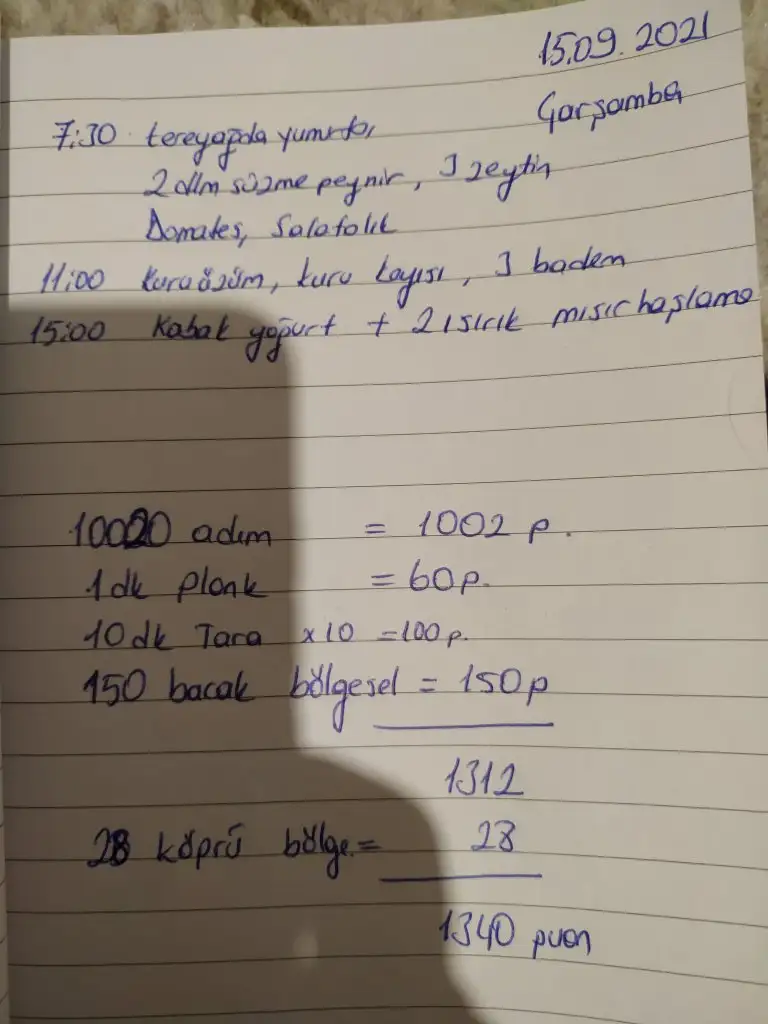 15.09.2021
Çarşamba
7:30 tereyağda yumurta,
2 dlm süzme peynir, 3 zeytin
Domates, Salatalık
11:00 kuru üzüm, kuru kayısı, 3 badem
15:00 Kabak yoğurt + 2 ısırık mısır haşlama
10020 adım = 1002 p.
1 dk plank = 60 p.
10 dk Tara x10 = 100 p.
150 bacak bölgesel = 150 p
1312
28 köprü bölge. = 28
1340 puan